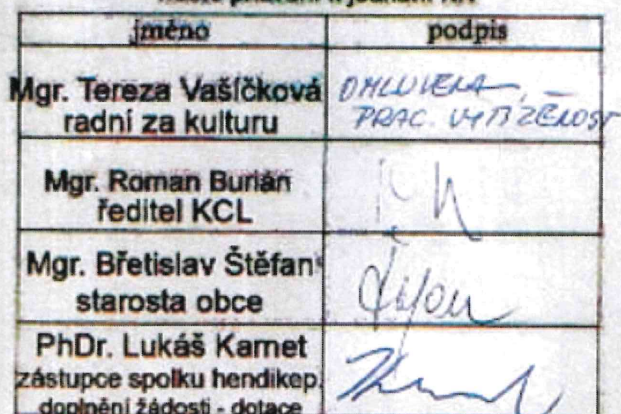 jméno podpis
Mgr. Tereza Vašíčková OMLUVENA,
radní za kulturu PRAC. VYTÍŽENOST
Mgr. Roman Burián
ředitel KCL
Mgr. Břetislav Štěfan
starosta obce
PhDr. Lukáš Karnet
zástupce spolku hendikep.
doplnění žádosti - dotace